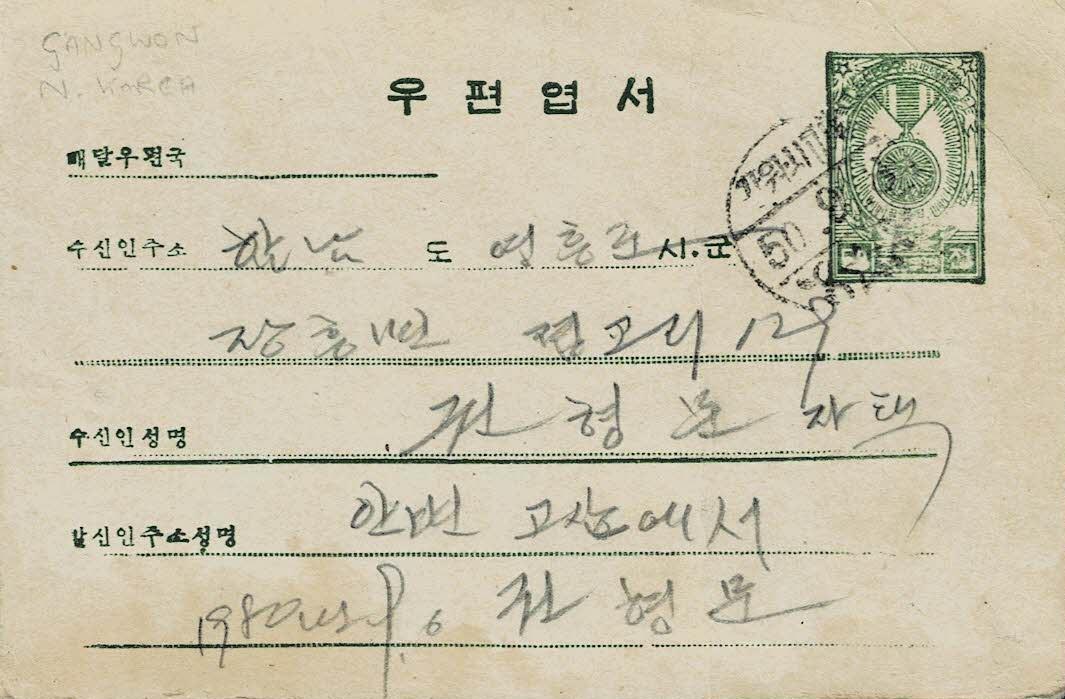 GANGWON
N. KOREA
우편엽서
배달우편국
수신인주소 함남 도 영흥 시.군
장흥면 리 129
수신인성명 전형문 자택
발신인주소성명 안변 고산에서
9. 6 전형문
50 9